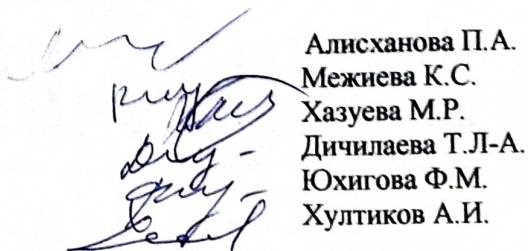 Алисханова П.А.
Межиева К.С.
Хазуева М.Р.
Дичилаева Т.Л-А.
Юхигова Ф.М.
Хултиков А.И.